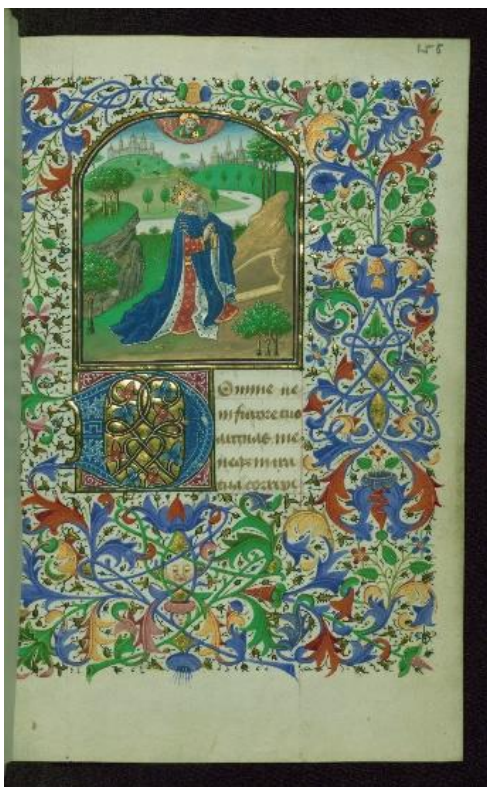 Domine ne
in furore tuo
arguas me
neqз in ira
tua corripi